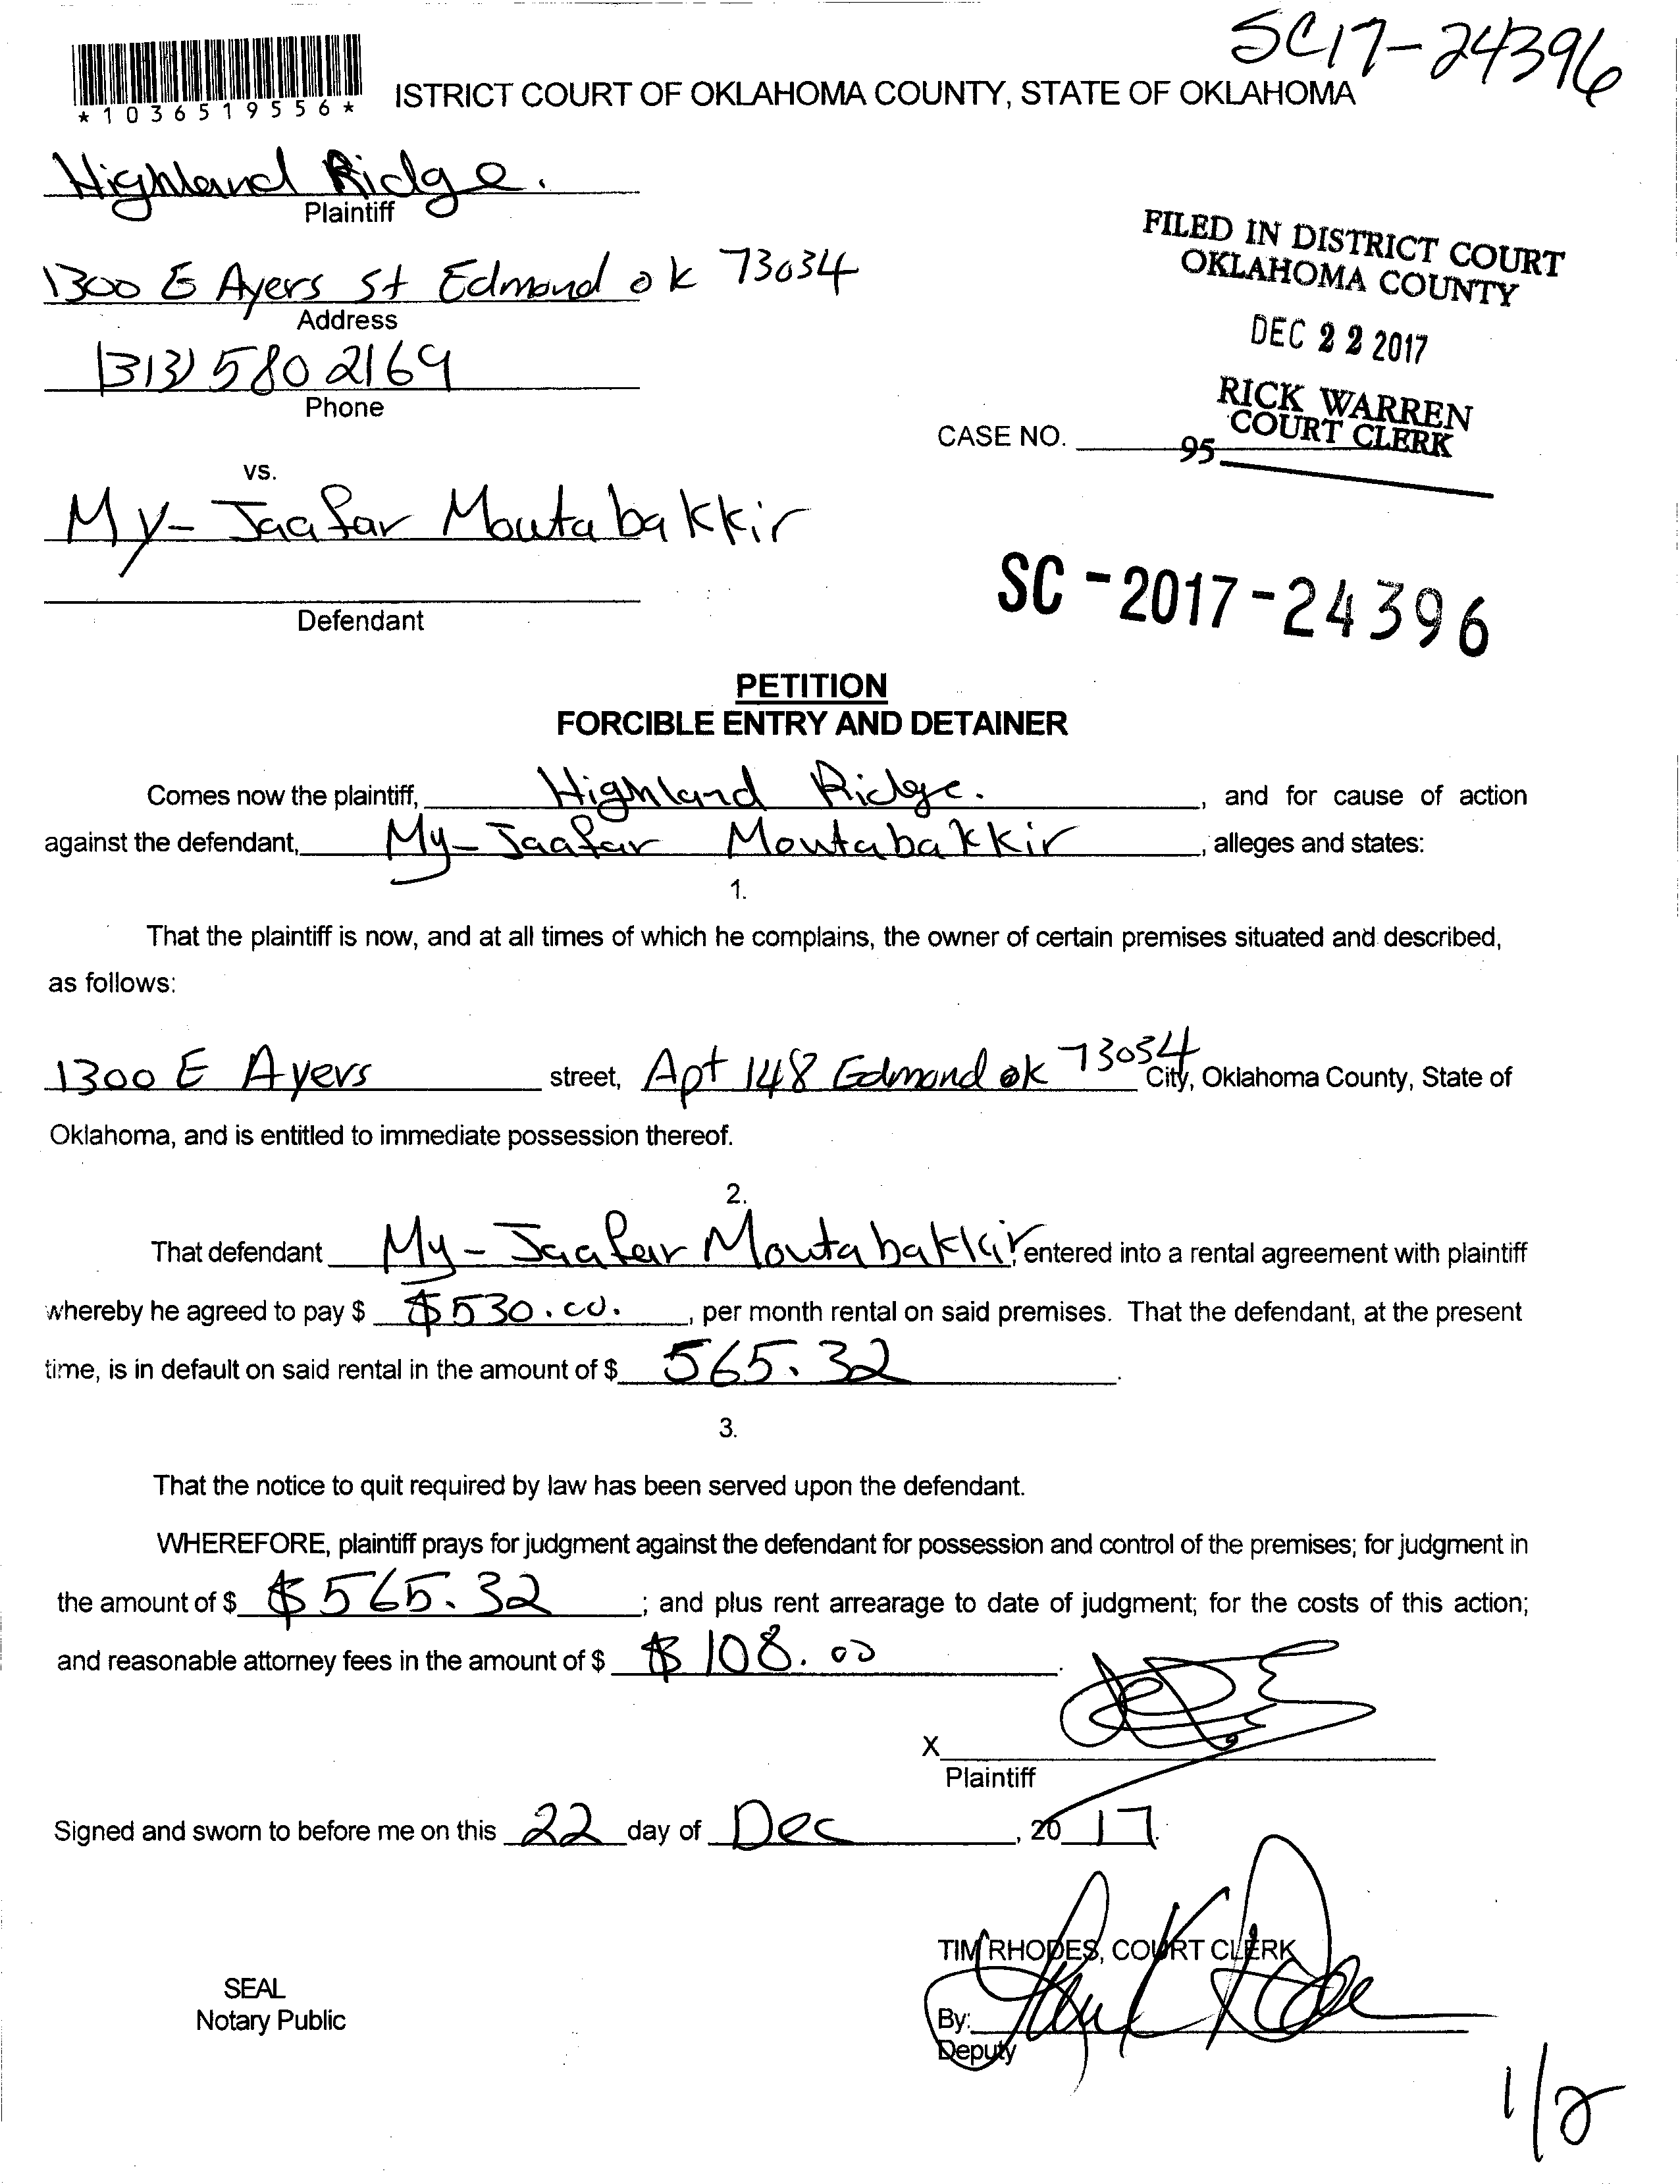 SC17-24396
*1036519556*
ISTRICT COURT OF OKLAHOMA COUNTY, STATE OF OKLAHOMA
Highland Ridge.
Plaintiff
1300 E Ayers St Edmond ok 73034
Address
(313) 580 2169
Phone
FILED IN DISTRICT COURT
OKLAHOMA COUNTY
DEC 22 2017
RICK WARREN
COURT CLERK
CASE NO.
95
vs.
My-Jaafar Moutabakkir
Defendant
SC-2017-24396
PETITION
FORCIBLE ENTRY AND DETAINER
Comes now the plaintiff, Highland Ridge. , and for cause of action
against the defendant, My-Jaafar Moutabakkir , alleges and states:
1.
That the plaintiff is now, and at all times of which he complains, the owner of certain premises situated and described,
as follows:
1300 E Ayers street, Apt 148 Edmond ok 73034 City, Oklahoma County, State of
Oklahoma, and is entitled to immediate possession thereof.
2.
That defendant My-Jaafar Moutabakkir, entered into a rental agreement with plaintiff
whereby he agreed to pay $ $530.00. , per month rental on said premises. That the defendant, at the present
time, is in default on said rental in the amount of $ 565.32 .
3.
That the notice to quit required by law has been served upon the defendant.
WHEREFORE, plaintiff prays for judgment against the defendant for possession and control of the premises; for judgment in
the amount of $ $565.32 ; and plus rent arrearage to date of judgment; for the costs of this action;
and reasonable attorney fees in the amount of $ $108.00 .
X
Plaintiff
Signed and sworn to before me on this 22 day of Dec , 20 17.
TIM RHODES, COURT CLERK
SEAL
Notary Public
By:
Deputy
1/2